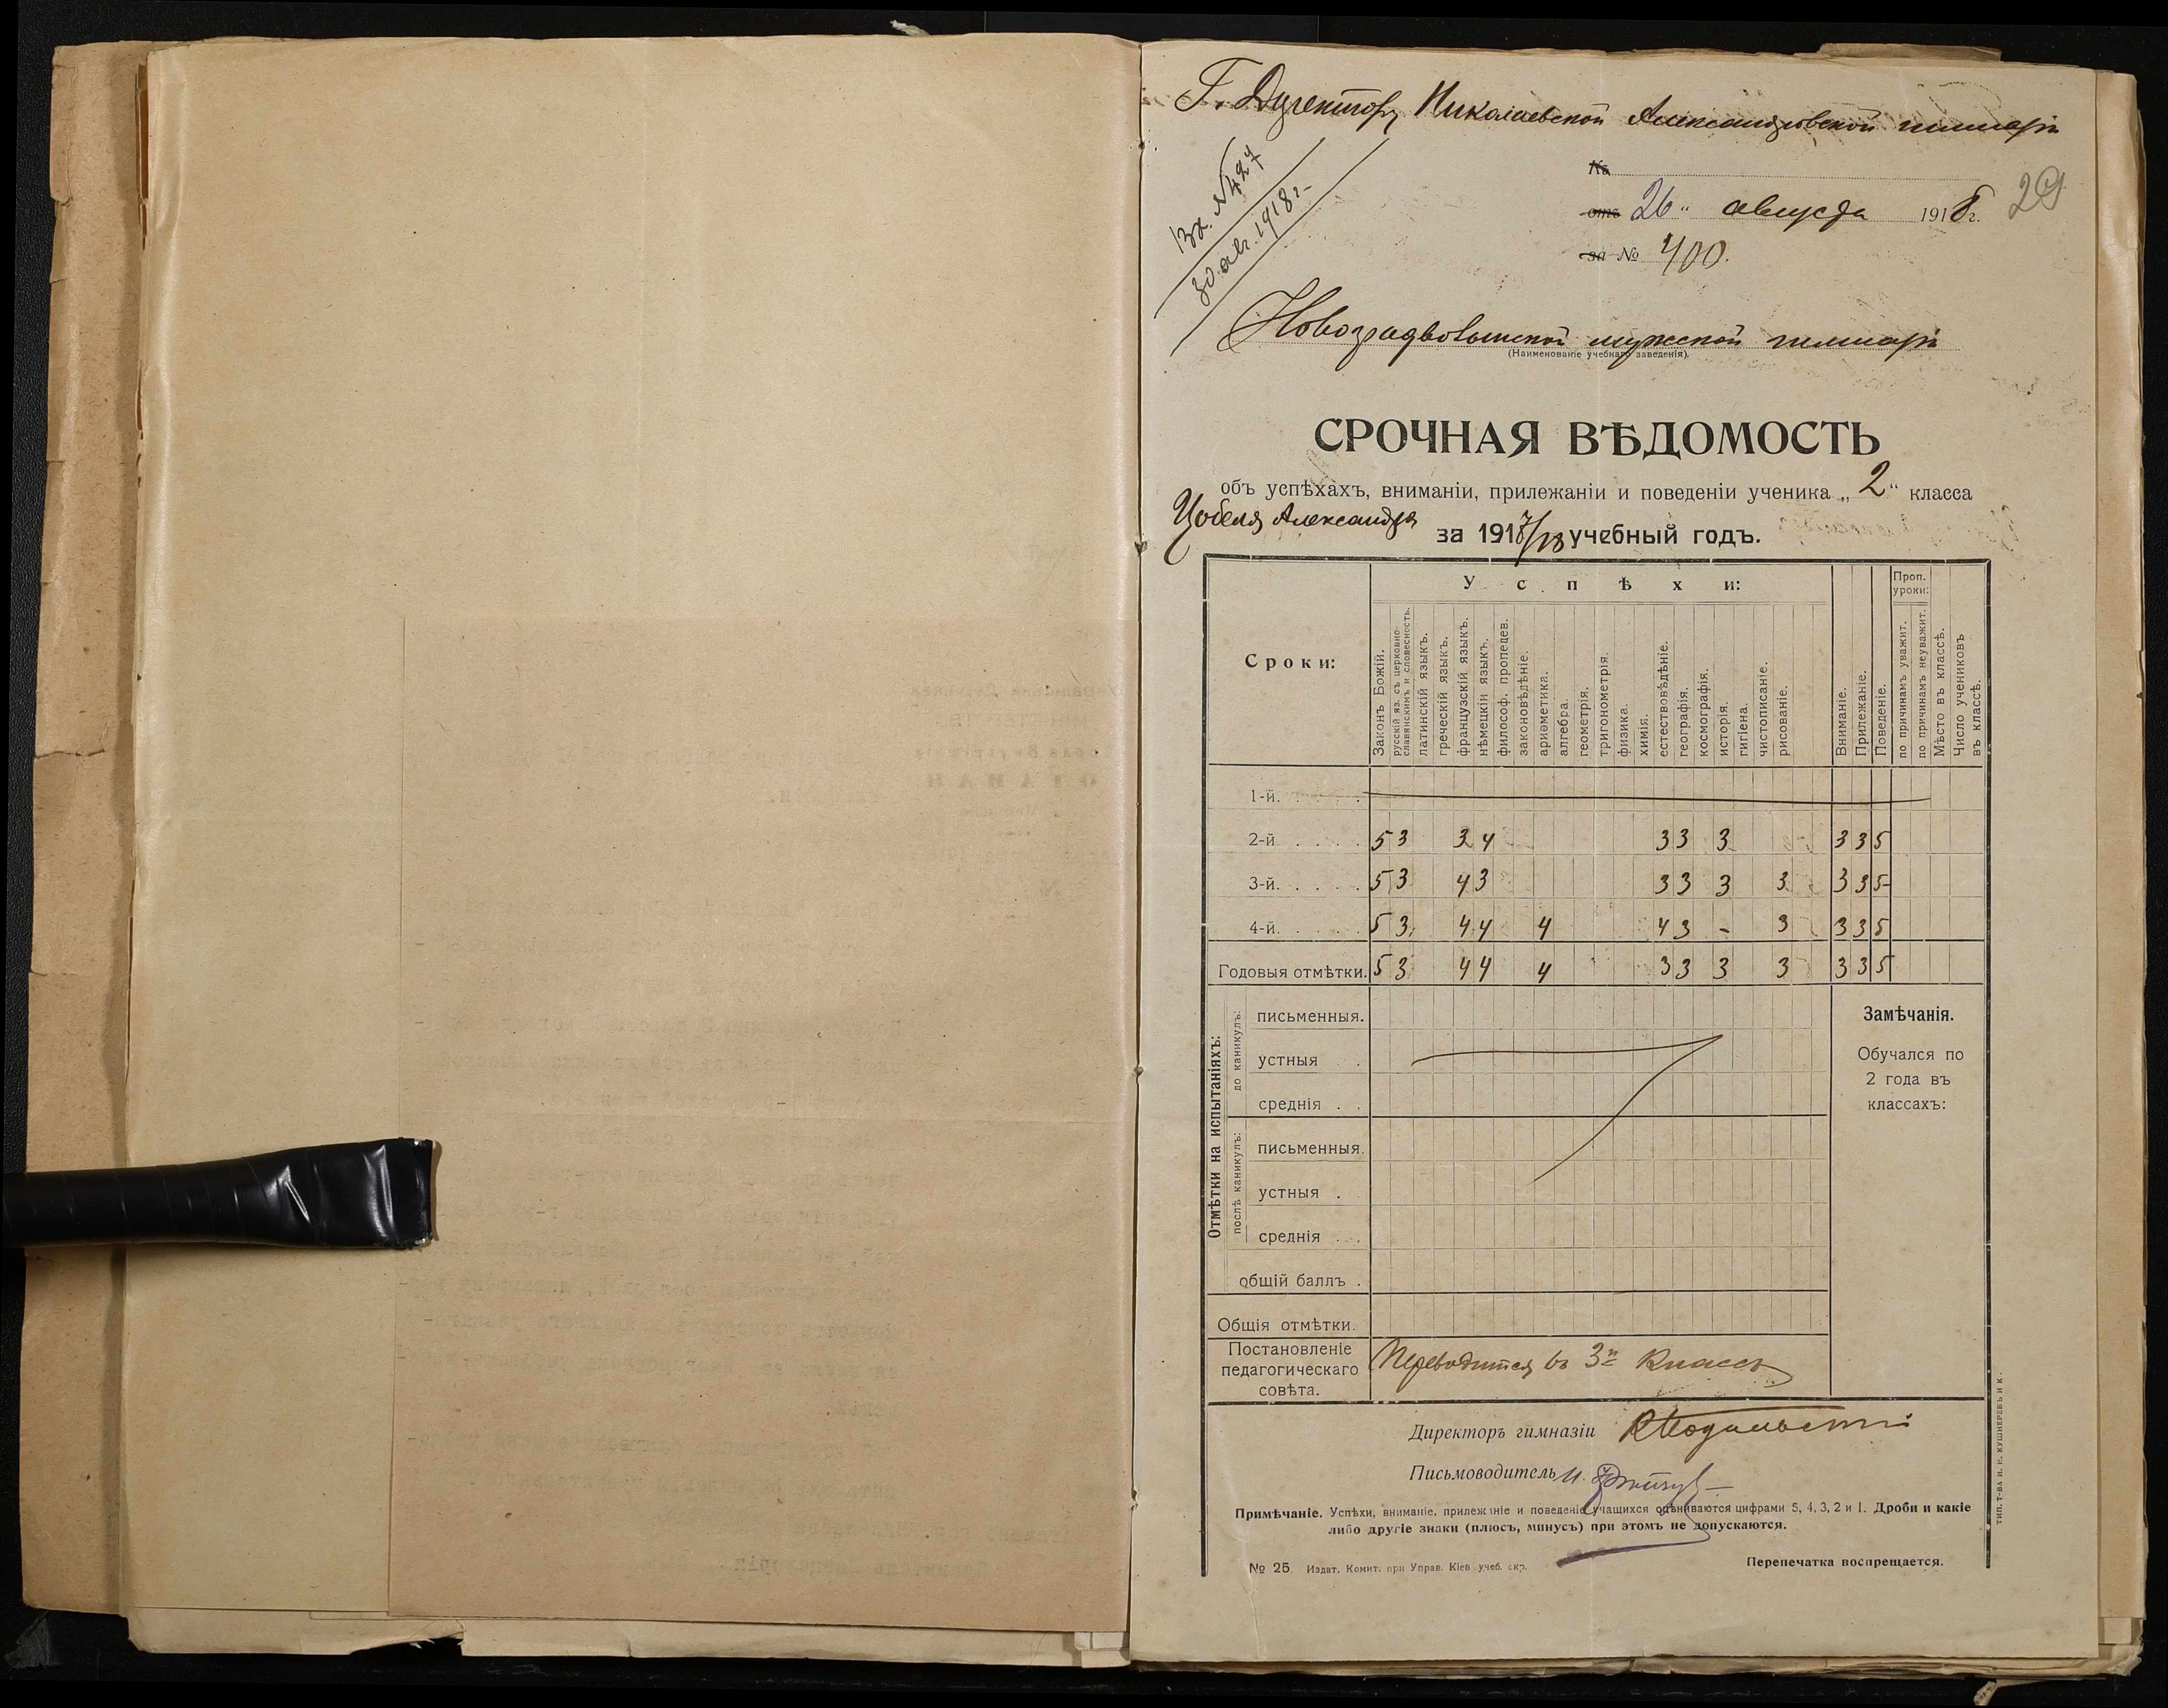 Г. Директору Николаевской Александровской гимназіи
Вх. № 427
30 авг. 1918 г.
№
отъ 26 " августа 1918 г.
29
за № 400.
Новоградволынской мужской гимназіи
(Наименованіе учебнаго заведенія).
СРОЧНАЯ ВѢДОМОСТЬ
объ успѣхахъ, вниманіи, прилежаніи и поведеніи ученика „2“ класса
Цобеля Александра
за 1917/18 учебный годъ.
Сроки:
Успѣхи:
Законъ Божій.
русскій яз. съ церковно-славянскимъ и словесность.
латинскій языкъ.
греческій языкъ.
французскій языкъ.
нѣмецкій языкъ.
философ. пропедев.
законовѣдѣніе.
ариѳметика.
алгебра.
геометрія.
тригонометрія.
физика.
химія.
естествовѣдѣніе.
географія.
космографія.
исторія.
гигіена.
чистописаніе.
рисованіе.
Вниманіе.
Прилежаніе.
Поведеніе.
Проп. уроки:
по причинамъ уважит.
по причинамъ неуважит.
Мѣсто въ классѣ.
Число учениковъ въ классѣ.
1-й. . . . .
2-й . . . . 5 3 3 4 3 3 3 3 3 5
3-й. . . . . 5 3 4 3 3 3 3 3 3 3 5
4-й. . . . . 5 3 4 4 4 4 3 - 3 3 3 5
Годовыя отмѣтки. 5 3 4 4 4 3 3 3 3 3 3 5
Отмѣтки на испытаніяхъ:
до каникулъ:
письменныя.
устныя .
среднія . .
послѣ каникулъ:
письменныя.
устныя .
среднія . .
общій баллъ .
Общія отмѣтки.
Замѣчанія.
Обучался по
2 года въ
классахъ:
Постановленіе
педагогическаго
совѣта.
Переводится въ 3й классъ
Директоръ гимназіи
Письмоводитель
Примѣчаніе. Успѣхи, вниманіе, прилежаніе и поведеніе учащихся оцѣниваются цифрами 5, 4, 3, 2 и 1. Дроби и какіе
либо другіе знаки (плюсъ, минусъ) при этомъ не допускаются.
№ 25 Издат. Комит. при Управ. Кіев. учеб. окр.
Перепечатка воспрещается.
ТИП. Т-ВА И. Н. КУШНЕРЕВЪ И К.